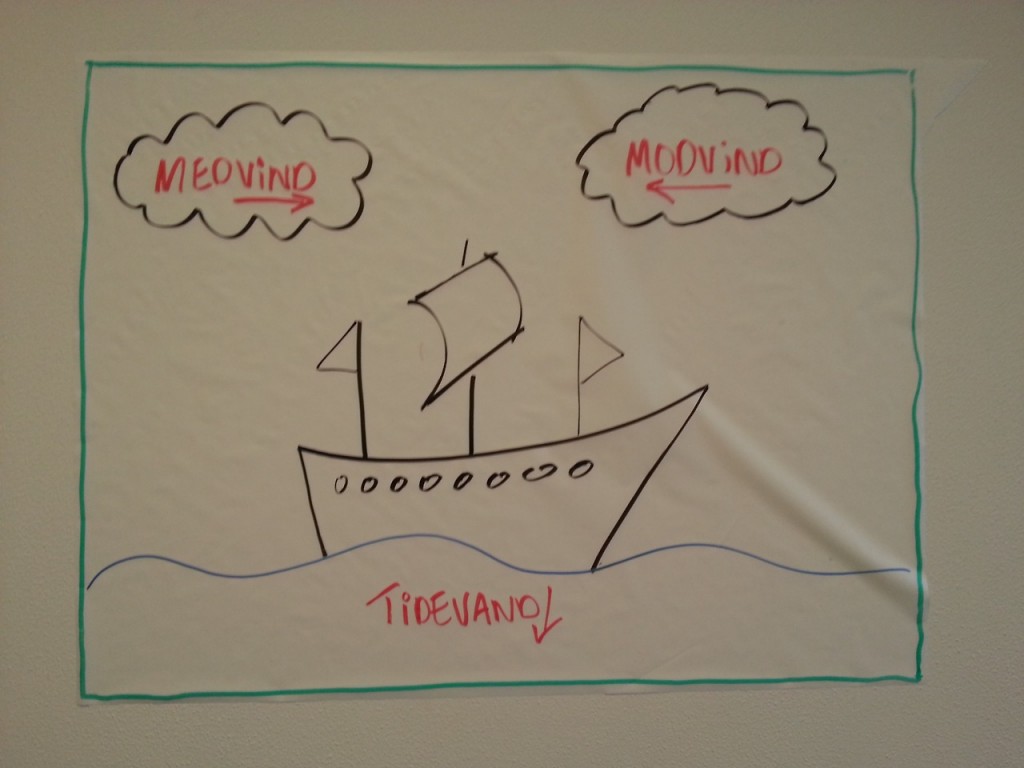 MEDVIND
MODVIND
TIDEVAND